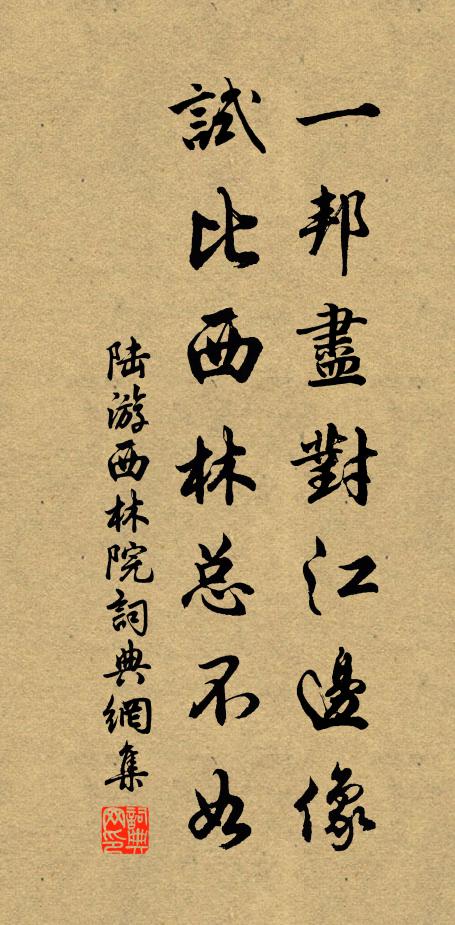 一邦盡對江邊像
試比西林总不如
陆游西林院詞典網集
詞典網印